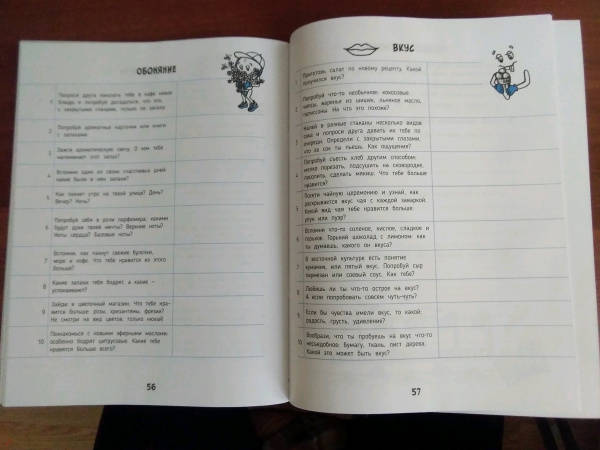 ОБОНЯНИЕ
1 Попроси друга показать тебе в кафе
блюдо и попробуй догадаться, что это,
с закрытыми глазами, только по запаху
2 Попробуй ароматные карточки или книги
с запахами
3 Зажги ароматическую свечу. О чем тебе
напоминает этот запах?
4 Вспомни один из своих счастливых дней
какие были в нём запахи?
5 Как пахнет утро на твоей улице? День?
Вечер? Ночь?
6 Попробуй себя в роли парфюмера: какими
будут духи твоей мечты? Верхние ноты?
Ноты сердца? Базовые ноты?
7 Вспомни, как пахнут свежие булочки,
море и кофе. Что тебе нравится из этого
больше?
8 Какие запахи тебя бодрят, а какие –
успокаивают?
9 Зайди в цветочный магазин. Что тебе нра-
вится больше: розы, хризантемы, фрезии?
Не смотри на вид цветов, только нюхай!
10 Познакомься с новыми эфирными маслами:
особенно бодрят цитрусовые. Какие тебе
нравятся больше всего?
56
ВКУС
1 Приготовь салат по новому рецепту. Какой
получился вкус?
2 Попробуй что-то необычное: кокосовые
чипсы, варенье из шишек, льняное масло,
На что это похоже?
3 Налей в разные стаканы несколько видов
сока и попроси друга давать их тебе по
очереди. Определи с закрытыми глазами,
что за сок ты пьешь. Как ощущения?
4 Попробуй съесть хлеб другим способом:
мелко порезать, подсушить на сковородке,
посолить, сделать мякиш. Что тебе больше
нравится?
5 Посети чайную церемонию и узнай, как
раскрывается вкус чая с каждой заваркой.
Какой вид чая тебе нравится больше:
улун или пуэр?
6 Вспомни что-то соленое, кислое, сладкое и
горькое. Горький шоколад с лимоном как
ты думаешь, какого он вкуса?
7 В восточной культуре есть понятие
«умами», или пятый вкус. Попробуй сыр
пармезан или соевый соус. Как тебе?
8 Любишь ли ты что-то острое на вкус?
А если попробовать совсем чуть-чуть?
9 Если бы чувства имели вкус, то какой:
радость, грусть, удивление?
10 Вообрази, что ты пробуешь на вкус что-то
несъедобное: бумагу, ткань, лист дерева.
Какой это может быть вкус?
57